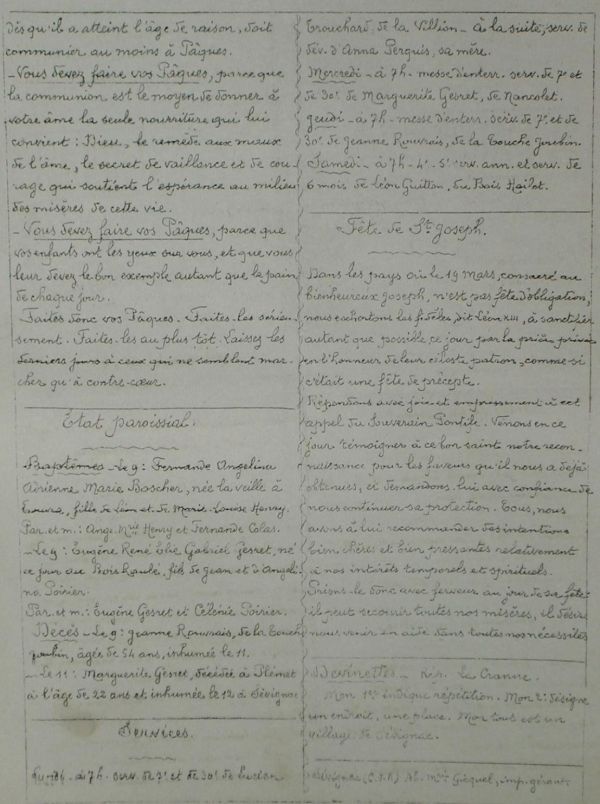 Dès qu'il a atteint l'âge de raison, doit
communier au moins à Pâques.
-Vous devez faire vos Pâques, parce que
la communion est le moyen de donner à
votre âme la seule nourriture qui lui
convient: Dieu, le remède aux maux
de l'âme, le secret de vaillance et de cou-
rage qui soutient l'espérance au milieu
des misères de cette vie.
-Vous devez faire vos Pâques, parce que
vos enfants ont les yeux sur vous, et que vous
leur devez le bon exemple autant que le pain
de chaque jour.
Faites donc vos Pâques. Faites-les sérieu-
sement. Faites-les au plus tôt. Laissez les
derniers jours à ceux qui ne semblent mar-
cher qu'à contre-cœur.
Etat paroissial.
Baptêmes - Le 9: Fernande Angelina
Adrienne Marie Boscher, née la veille à
fille de Léon et de Marie-Louise Henry.
Par. et m.: Ange Henry et Fernande Colas.
-Le 9: Eugène René Elie Gabriel Gesret, né
ce jour au Bois Raulé, fils de Jean et d'Angeli-
na Poirier.
Par. et m: Eugène Gesret et Célénie Poirier.
Décès - Le 9: Jeanne Rouvrais, de la Touche
âgée de 54 ans, inhumée le 11.
-Le 11: Marguerite Gesret, décédée à Plémet
à l'âge de 22 ans et inhumée le 12 à Sévignac
Services.
à 7h. serv. de 7e et de 30e de Lucien
Trouchard, de la Villion - à la suite, serv. de
dév. d'Anna Perquis, sa mère.
Mercredi - à 7h - messe d'enterr. serv. de 7e et
de 30e de Marguerite Gesret, de Nancolet.
Jeudi - à 7h - messe d'enterr. serv. de 7e et de
30e de Jeanne Rouvrais, de la Touche
Samedi - à 7h - 4e - 5e serv. ann. et serv. de
6 mois de Léon Guitton, du Bois Hailot.
Fête de St. Joseph.
Dans les pays où le 19 Mars, consacré au
bienheureux Joseph, n'est pas fête d'obligation,
nous exhortons les fidèles, dit Léon XIII, à sanctifier
autant que possible ce jour par la prière privée
en l'honneur de leur céleste patron, comme si
c'était une fête de précepte.
Répondons avec joie et empressement à cet
appel du Souverain Pontife. Venons en ce
jour témoigner à ce bon saint notre recon-
naissance pour les faveurs qu'il nous a déjà
obtenues, et demandons-lui avec confiance de
nous continuer sa protection. Tous, nous
avons à lui recommander des intentions
bien chères et bien pressantes relativement
à nos intérêts temporels et spirituels.
Prions-le donc avec ferveur au jour de sa fête:
il peut secourir toutes nos misères, il désire
nous venir en aide dans toutes nos nécessités
Devinettes - Rép. le Cranne.
Mon 1er indique répétition. Mon 2e désigne
un endroit, une place. Mon tout est un
village de Sévignac.
Sévignac (C.d.N) Ab. Gicquel, imp. gérant.